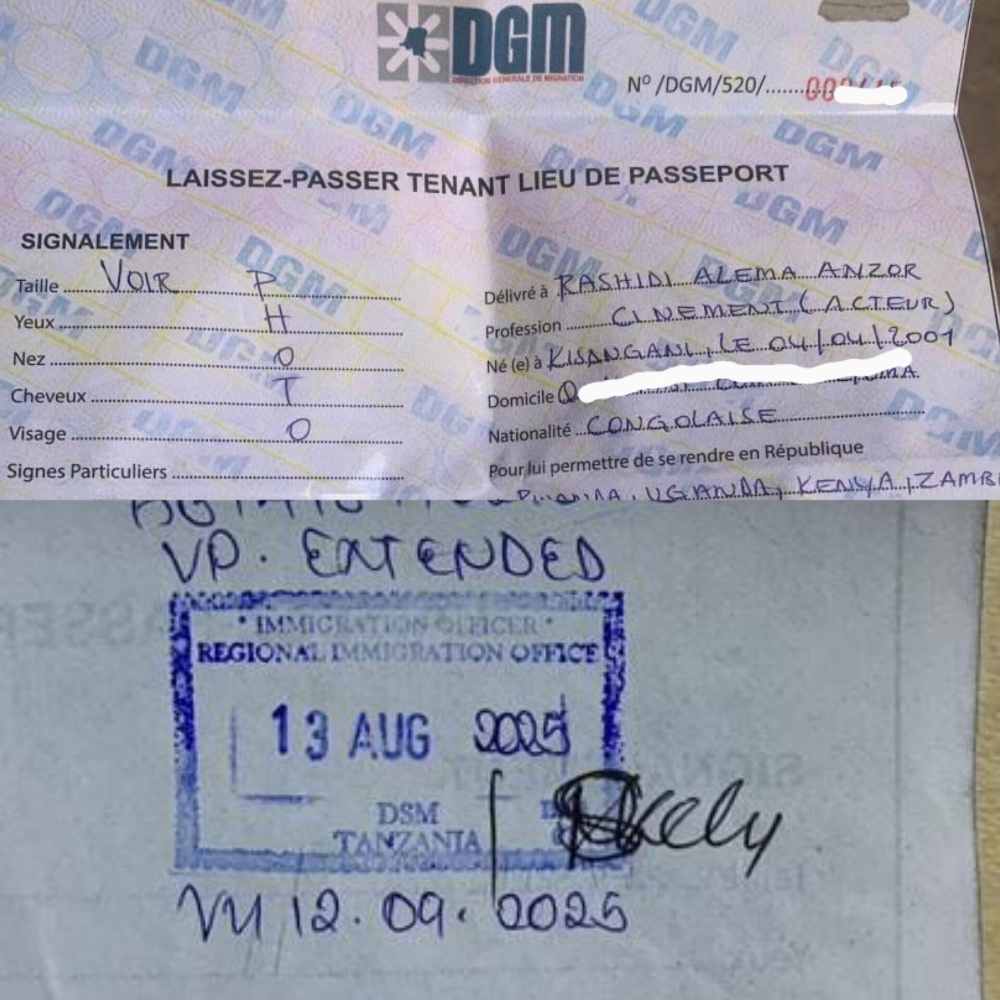 DGM
DIRECTION GENERALE DE MIGRATION
N° /DGM/520/.......00
LAISSEZ-PASSER TENANT LIEU DE PASSEPORT
SIGNALEMENT
Taille VOIR P
Yeux H
Nez O
Cheveux T
Visage O
Signes Particuliers
Délivré à RASHIDI ALEMA ANZOR
Profession CINEMENT (ACTEUR)
Né (e) à KISANGANI, LE 04/04/2001
Domicile Q
Nationalité CONGOLAISE
Pour lui permettre de se rendre en République
UGANDA, KENYA, ZAMBI
VP. EXTENDED
* IMMIGRATION OFFICER *
REGIONAL IMMIGRATION OFFICE
13 AUG 2025
DSM
TANZANIA
12.09.2025